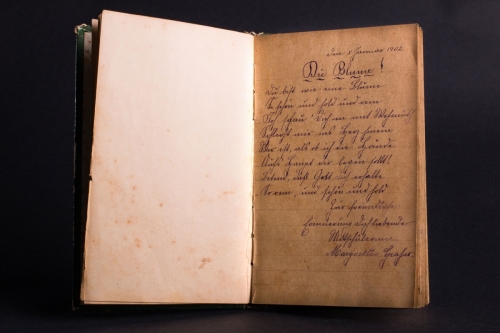 den 8 Januar 1902.
Du Blume!
Du bist wie eine Blume
So schön und hold und rein
Ich schau' Dich an und Wehmut
Schleicht mir ins Herz hinein
Mir ist, als ob ich die Hände
Aufs Haupt dir legen sollt!
Betend, daß Gott dich erhalte
So rein, und schön und hold
Zur freundlich
Erinnerung Dich liebende
Mitschülerin